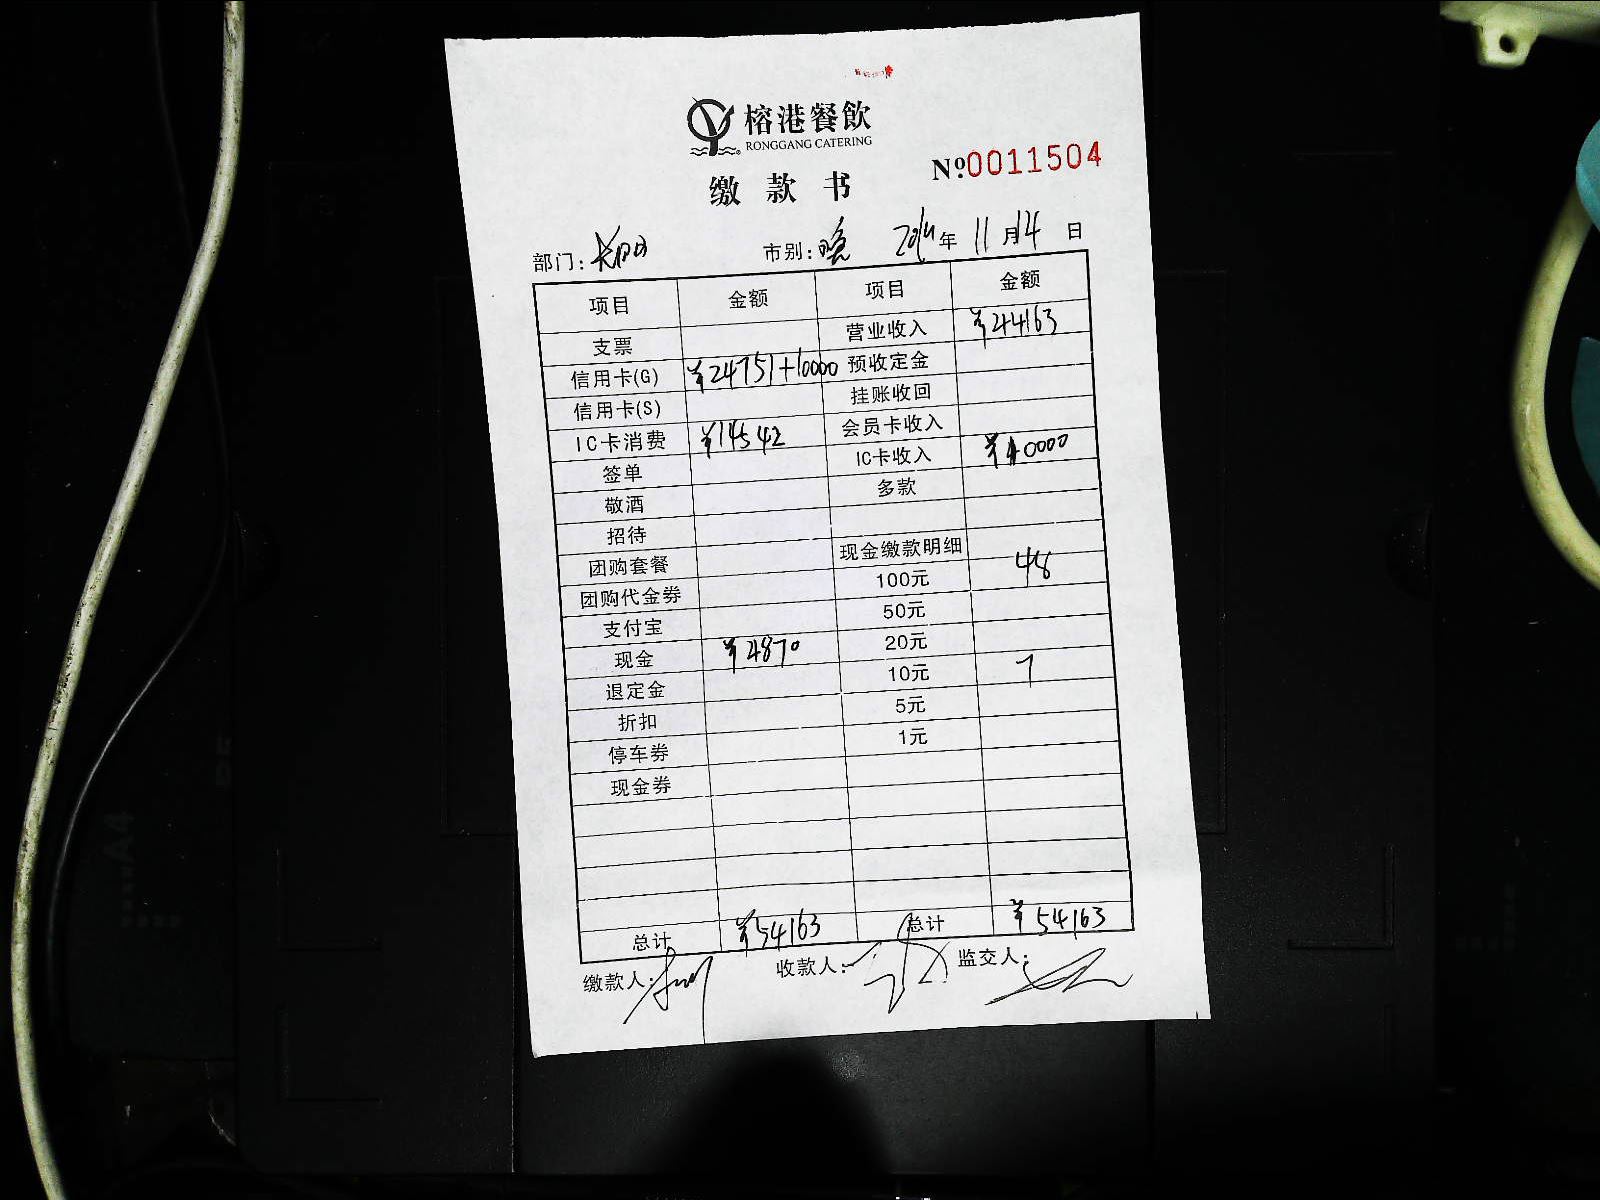 榕港餐飲
RONGGANG CATERING
缴款书
№0011504
部门: 市别:晚 2014年11月14日
项目 金额 项目 金额
支票 营业收入 ¥44163
信用卡(G) ¥24751+10000 预收定金
信用卡(S) 挂账收回
IC卡消费 ¥14542 会员卡收入
签单 IC卡收入 ¥10000
敬酒 多款
招待
团购套餐 现金缴款明细
团购代金券 100元 48
支付宝 50元
现金 ¥4870 20元
退定金 10元 7
折扣 5元
停车券 1元
现金券
总计 ¥54163 总计 ¥54163
缴款人: 收款人: 监交人: